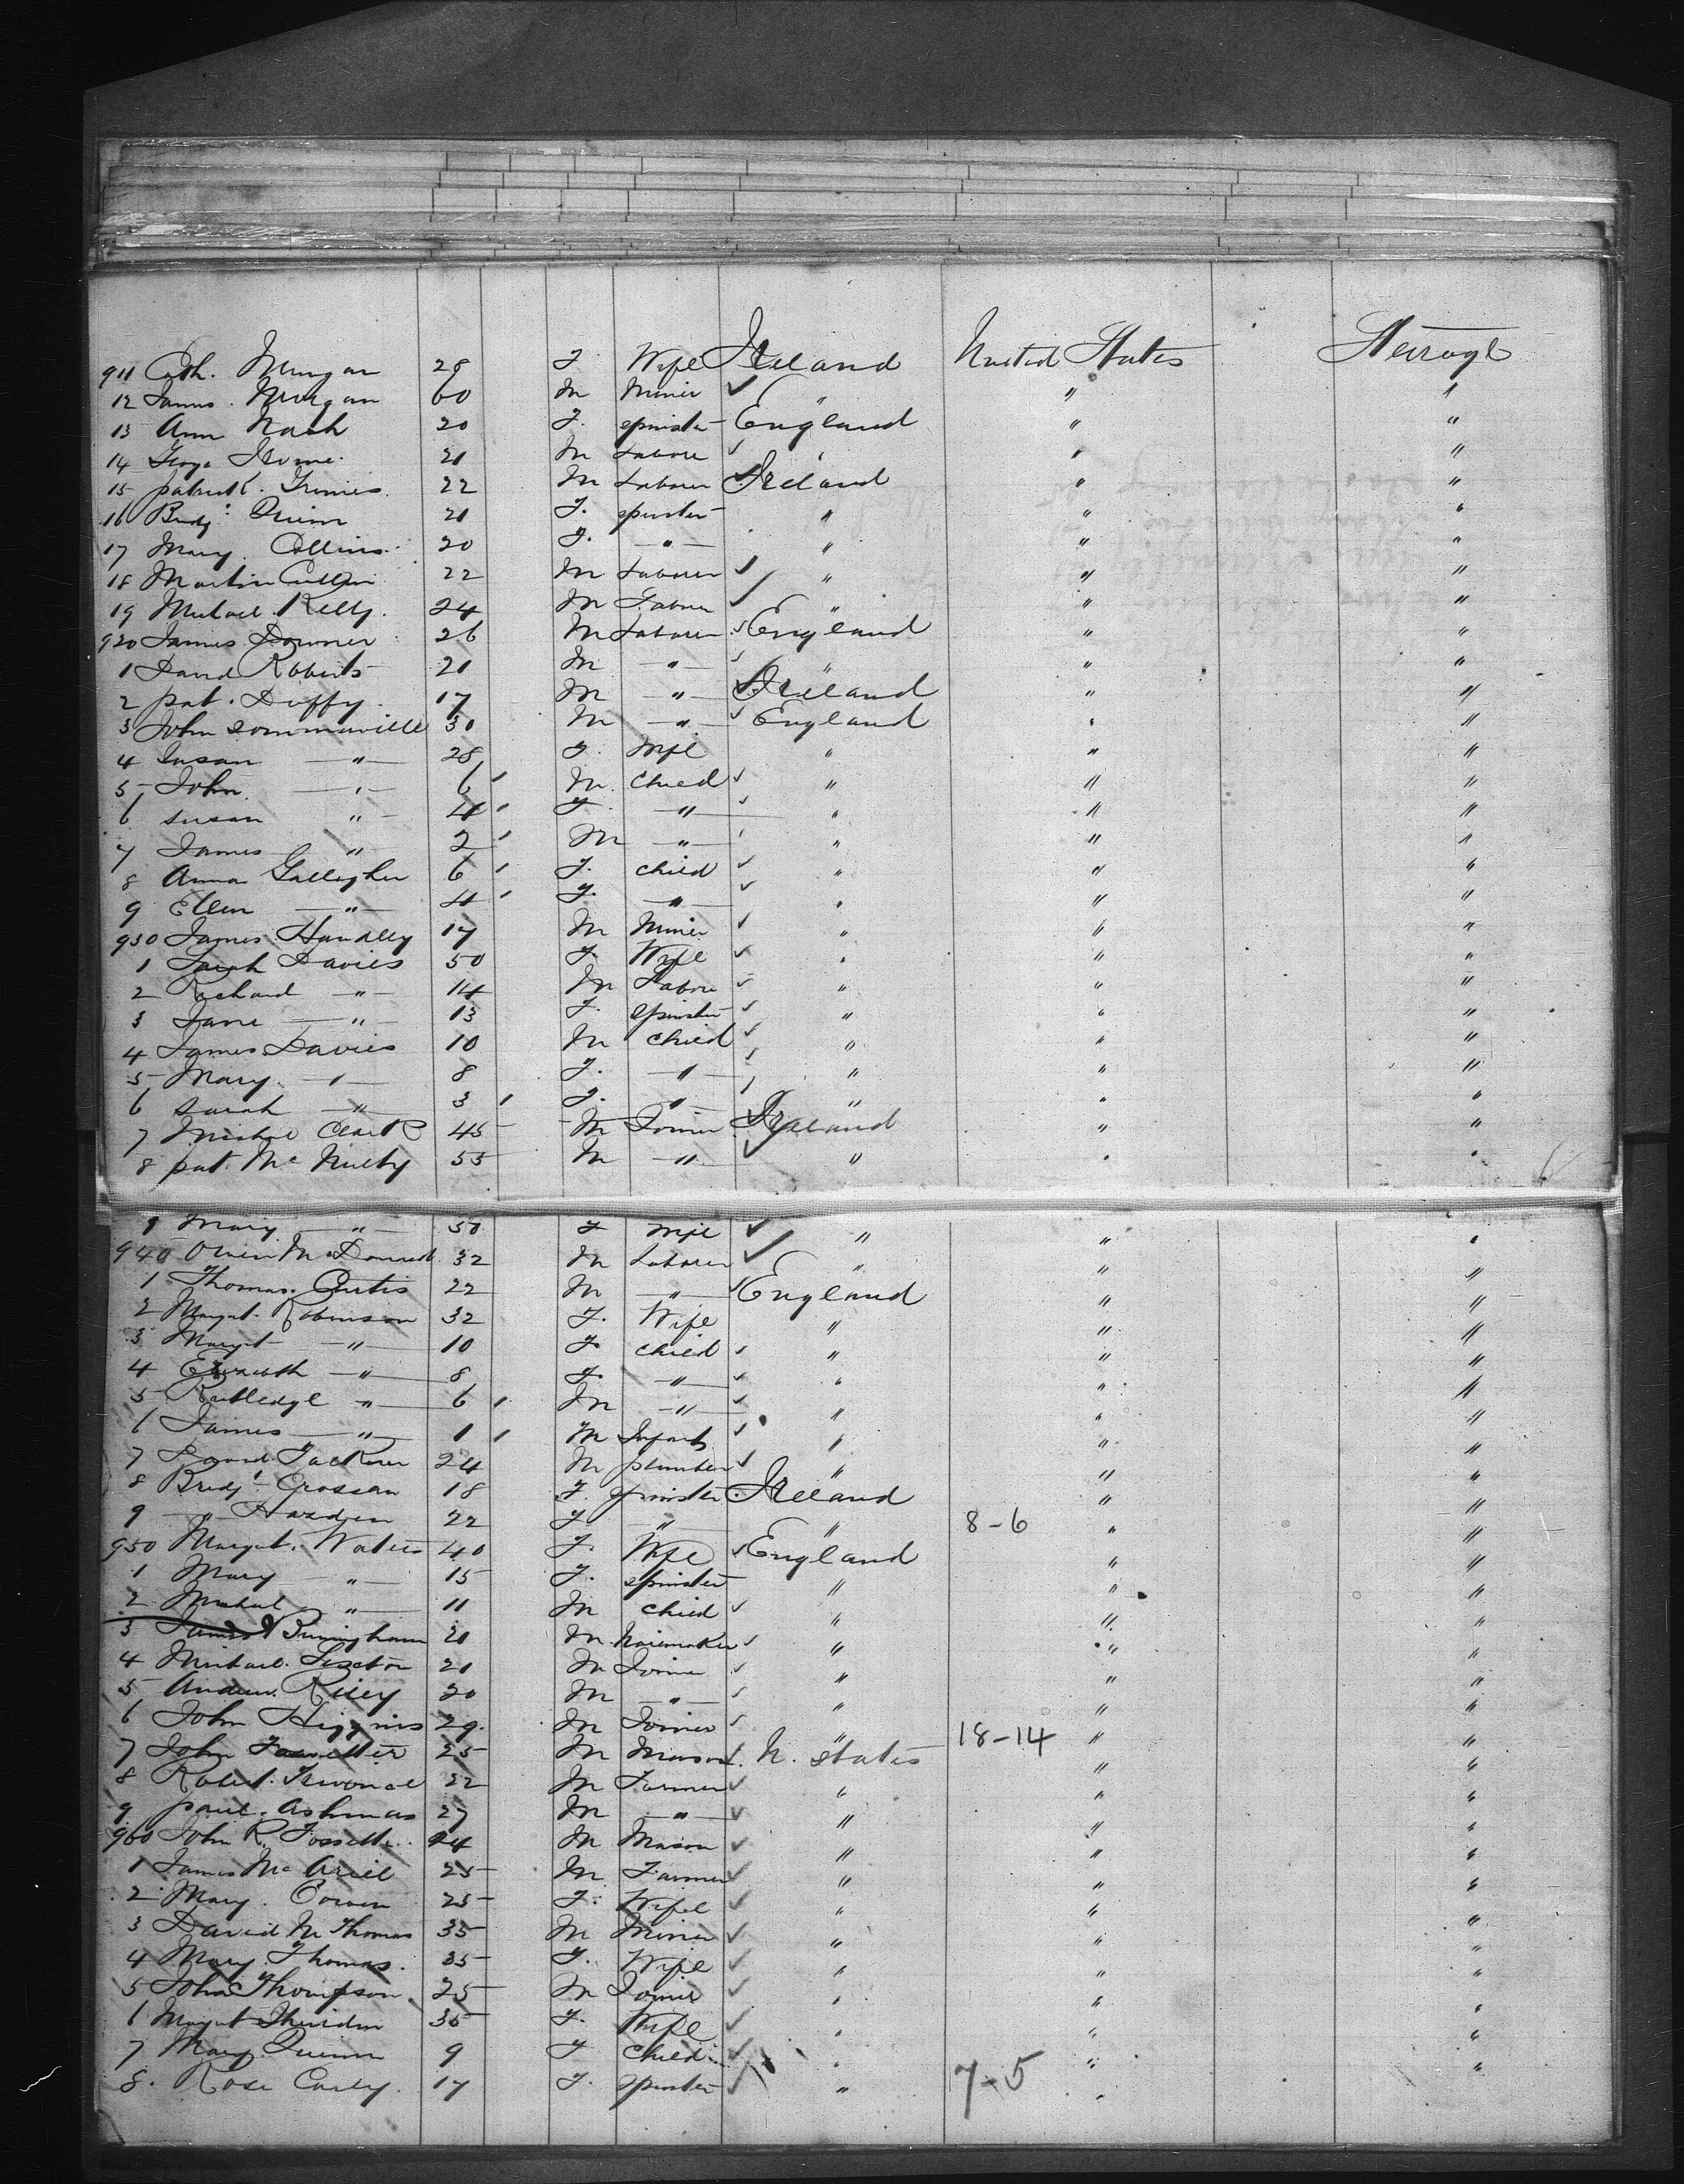 911 Cath. Morgan 28 F Wife Ireland United States Steerage
12 James Morgan 60 M Miner " " "
13 Ann Nash 20 F. spinster England " "
14 George 21 M Labore " " "
15 patrick Grimes 22 M Laborer Ireland " "
16 Bridj. Quinn 21 F. spinster " " "
17 Mary Collins 20 F. — " — " " "
18 Martin 22 M Laborer " " "
19 Michael Kelly 24 M Labrer " " "
920 James Downer 26 M Laborer England " "
1 David Roberts 21 M — " — " " "
2 pat. Duffy 17 M — " — Ireland " "
3 John Sommerville 30 M — " — England " "
4 Susan — " — 28 F. Wife " " "
5 John — " — 6 M. Child " " "
6 susan " — 4 F — " — " " "
7 James " 2 M — " — " " "
8 Anna Gallagher 6 F. child " " "
9 Ellen — " — 4 F. — " — " " "
930 James Handley 17 M Miner " " "
1 Sarah Davies 50 F. Wife " " "
2 Richard — " — 14 M Labore " " "
3 Jane — " — 13 F. spinster " " "
4 James Davies 10 M child " " "
5 Mary — " — 8 F. — " — " " "
6 sarah — " — 3 F. " " " "
7 Michal Clark 45 M Joiner Ireland " "
8 pat. Mc Nulty 55 M — " — " " "
9 Mary — " — 50 F Wife " " "
940 Owen McDonnell 32 M Laborer " " "
1 Thomas Curtis 22 M — " — England " "
2 Margt. Robinson 32 F. Wife " " "
3 Margt — " — 10 F child " " "
4 — " — 8 F. — " — " " "
5 Rutledge — " — 6 M — " — " " "
6 James — " — 1 M Infant " " "
7 24 M plumber " " "
8 Bridjt Crossan 18 F. spinster Ireland " "
9 — " — 22 F — " — " 8-6 " "
950 Margt. Waters 40 F. Wife England " "
1 Mary — " — 15 F. spinster " " "
2 Michal — " — 11 M child " " "
3 James Burmingham 21 M " " "
4 Michael 21 M Joiner " " "
5 Andrew Riley 20 M — " — " " "
6 John Higgins 29. M Joiner " 18-14 " "
7 John 25 M Mason U. states " "
8 Robert 22 M Farmer " " "
9 paul Ashmas 27 M — " — " " "
960 John R. Fossette 24 M Mason " " "
1 James Mc 25 M Farmer " " "
2 Mary Cowen 25 F. Wife " " "
3 David M Thomas 35 M Miner " " "
4 Mary Thomas. 35 F. Wife " " "
5 John Thompson 25 M Joiner " " "
6 Margt Sheridan 35 F. Wife " " "
7 Mary Quinn 9 F Child " " "
8. Rose 17 F. spinster " 7-5 "